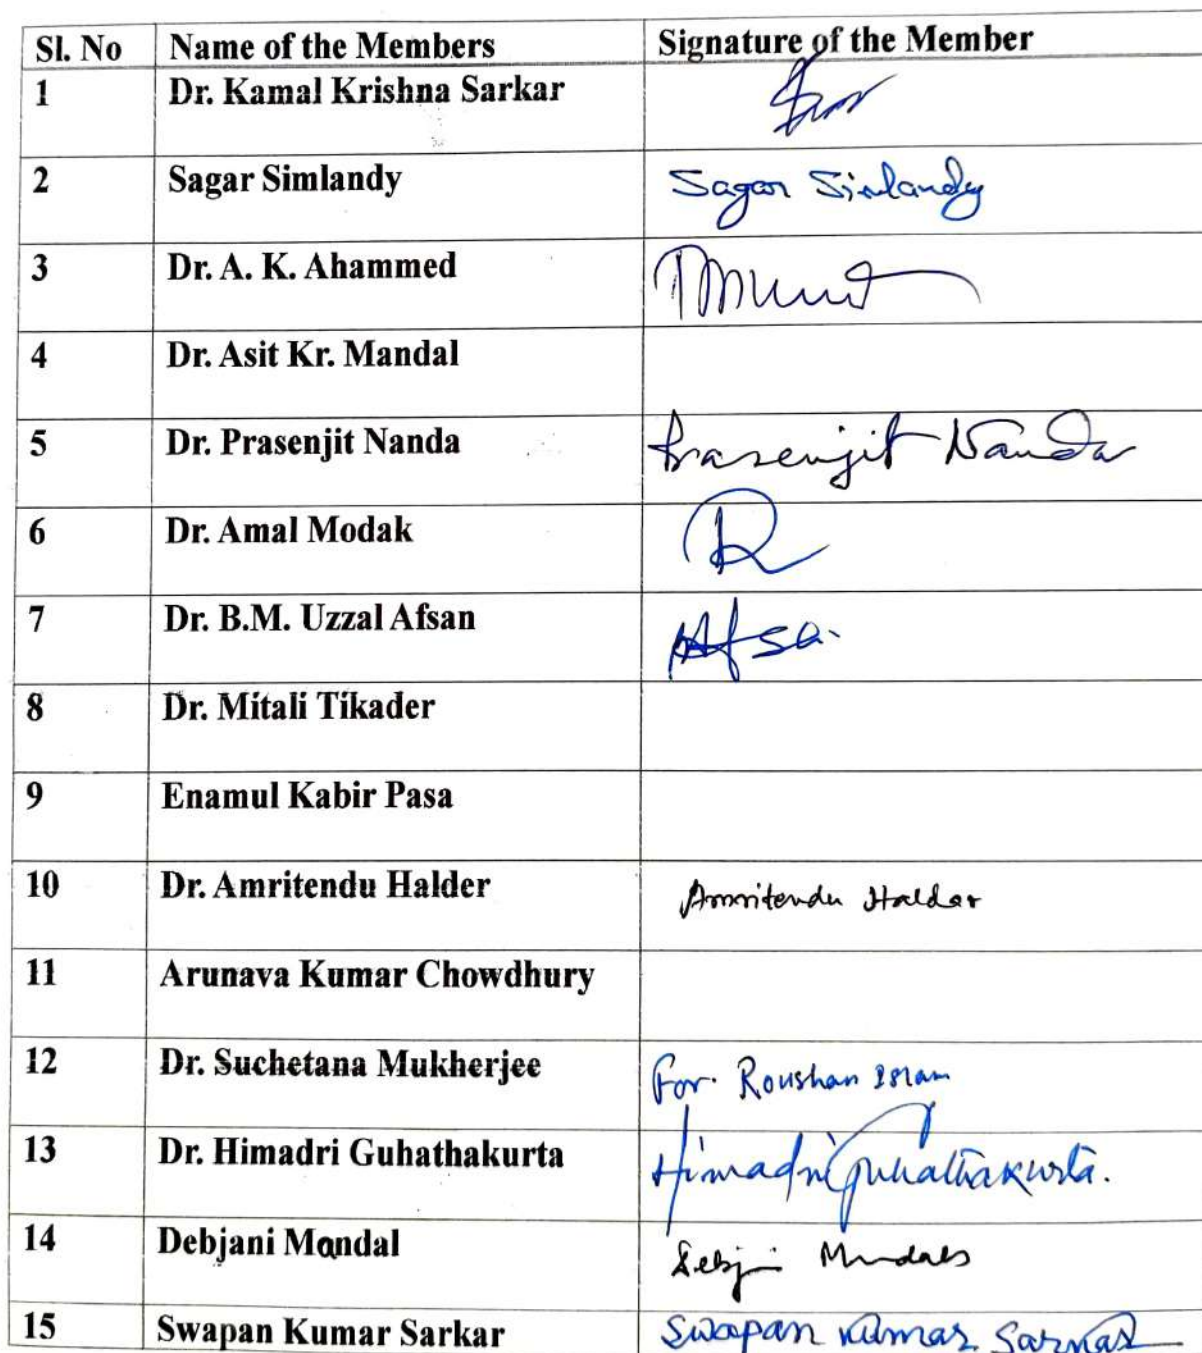 Sl. No Name of the Members Signature of the Member
1 Dr. Kamal Krishna Sarkar
2 Sagar Simlandy Sagar Simlandy
3 Dr. A. K. Ahammed
4 Dr. Asit Kr. Mandal
5 Dr. Prasenjit Nanda Prasenjit Nanda
6 Dr. Amal Modak
7 Dr. B.M. Uzzal Afsan
8 Dr. Mitali Tikader
9 Enamul Kabir Pasa
10 Dr. Amritendu Halder Amritendu Haldar
11 Arunava Kumar Chowdhury
12 Dr. Suchetana Mukherjee For. Roushan Islam
13 Dr. Himadri Guhathakurta Himadri Guhathakurta.
14 Debjani Mandal
15 Swapan Kumar Sarkar Swapan Kumar Sarkar